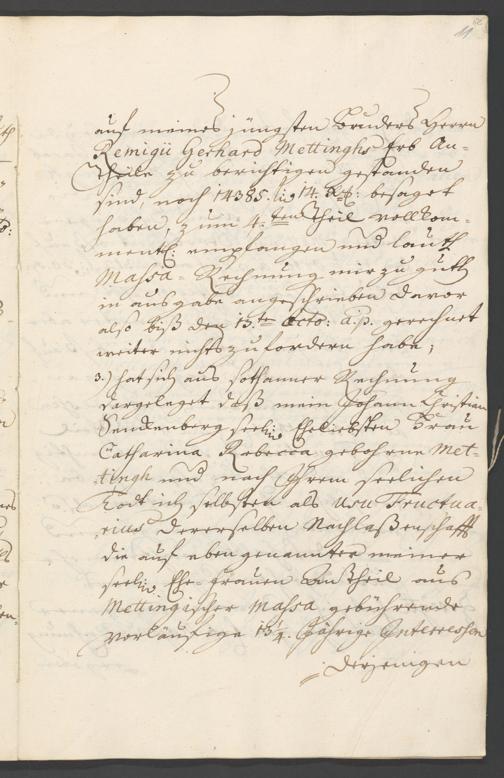 11
auf meines jüngsten Bruders Herrn
Remigii Gerhard Mettinghs Erb An-
theile zu berichtigen gestanden
sind, noch 14385. 14. besaget
haben, zum 4.ten Theil vollkom-
mentl. empfangen und lauth
Massa-Rechnung mir zu guth
in ausgabe angeschrieben davor
also biß den 13.ten Octo: a.p. gerechnet
weiter nichts zu fordern habe;
3.) hat sich aus sothanner Rechnung
dargeleget daß mein Johann Christian
Senckenberg Eheliebsten Frau
Catharina Rebecca gebohrne Met-
tingh und nach Ihrem seelichen
Todt ich selbsten als Usu Fructua-
rius dererselben Nachlaßenschafft
die auf eben genannter meiner
Ehe-frauen Antheil aus
Mettingischer Massa gebührende
vorläufige Jährige Interessen
derjenigen